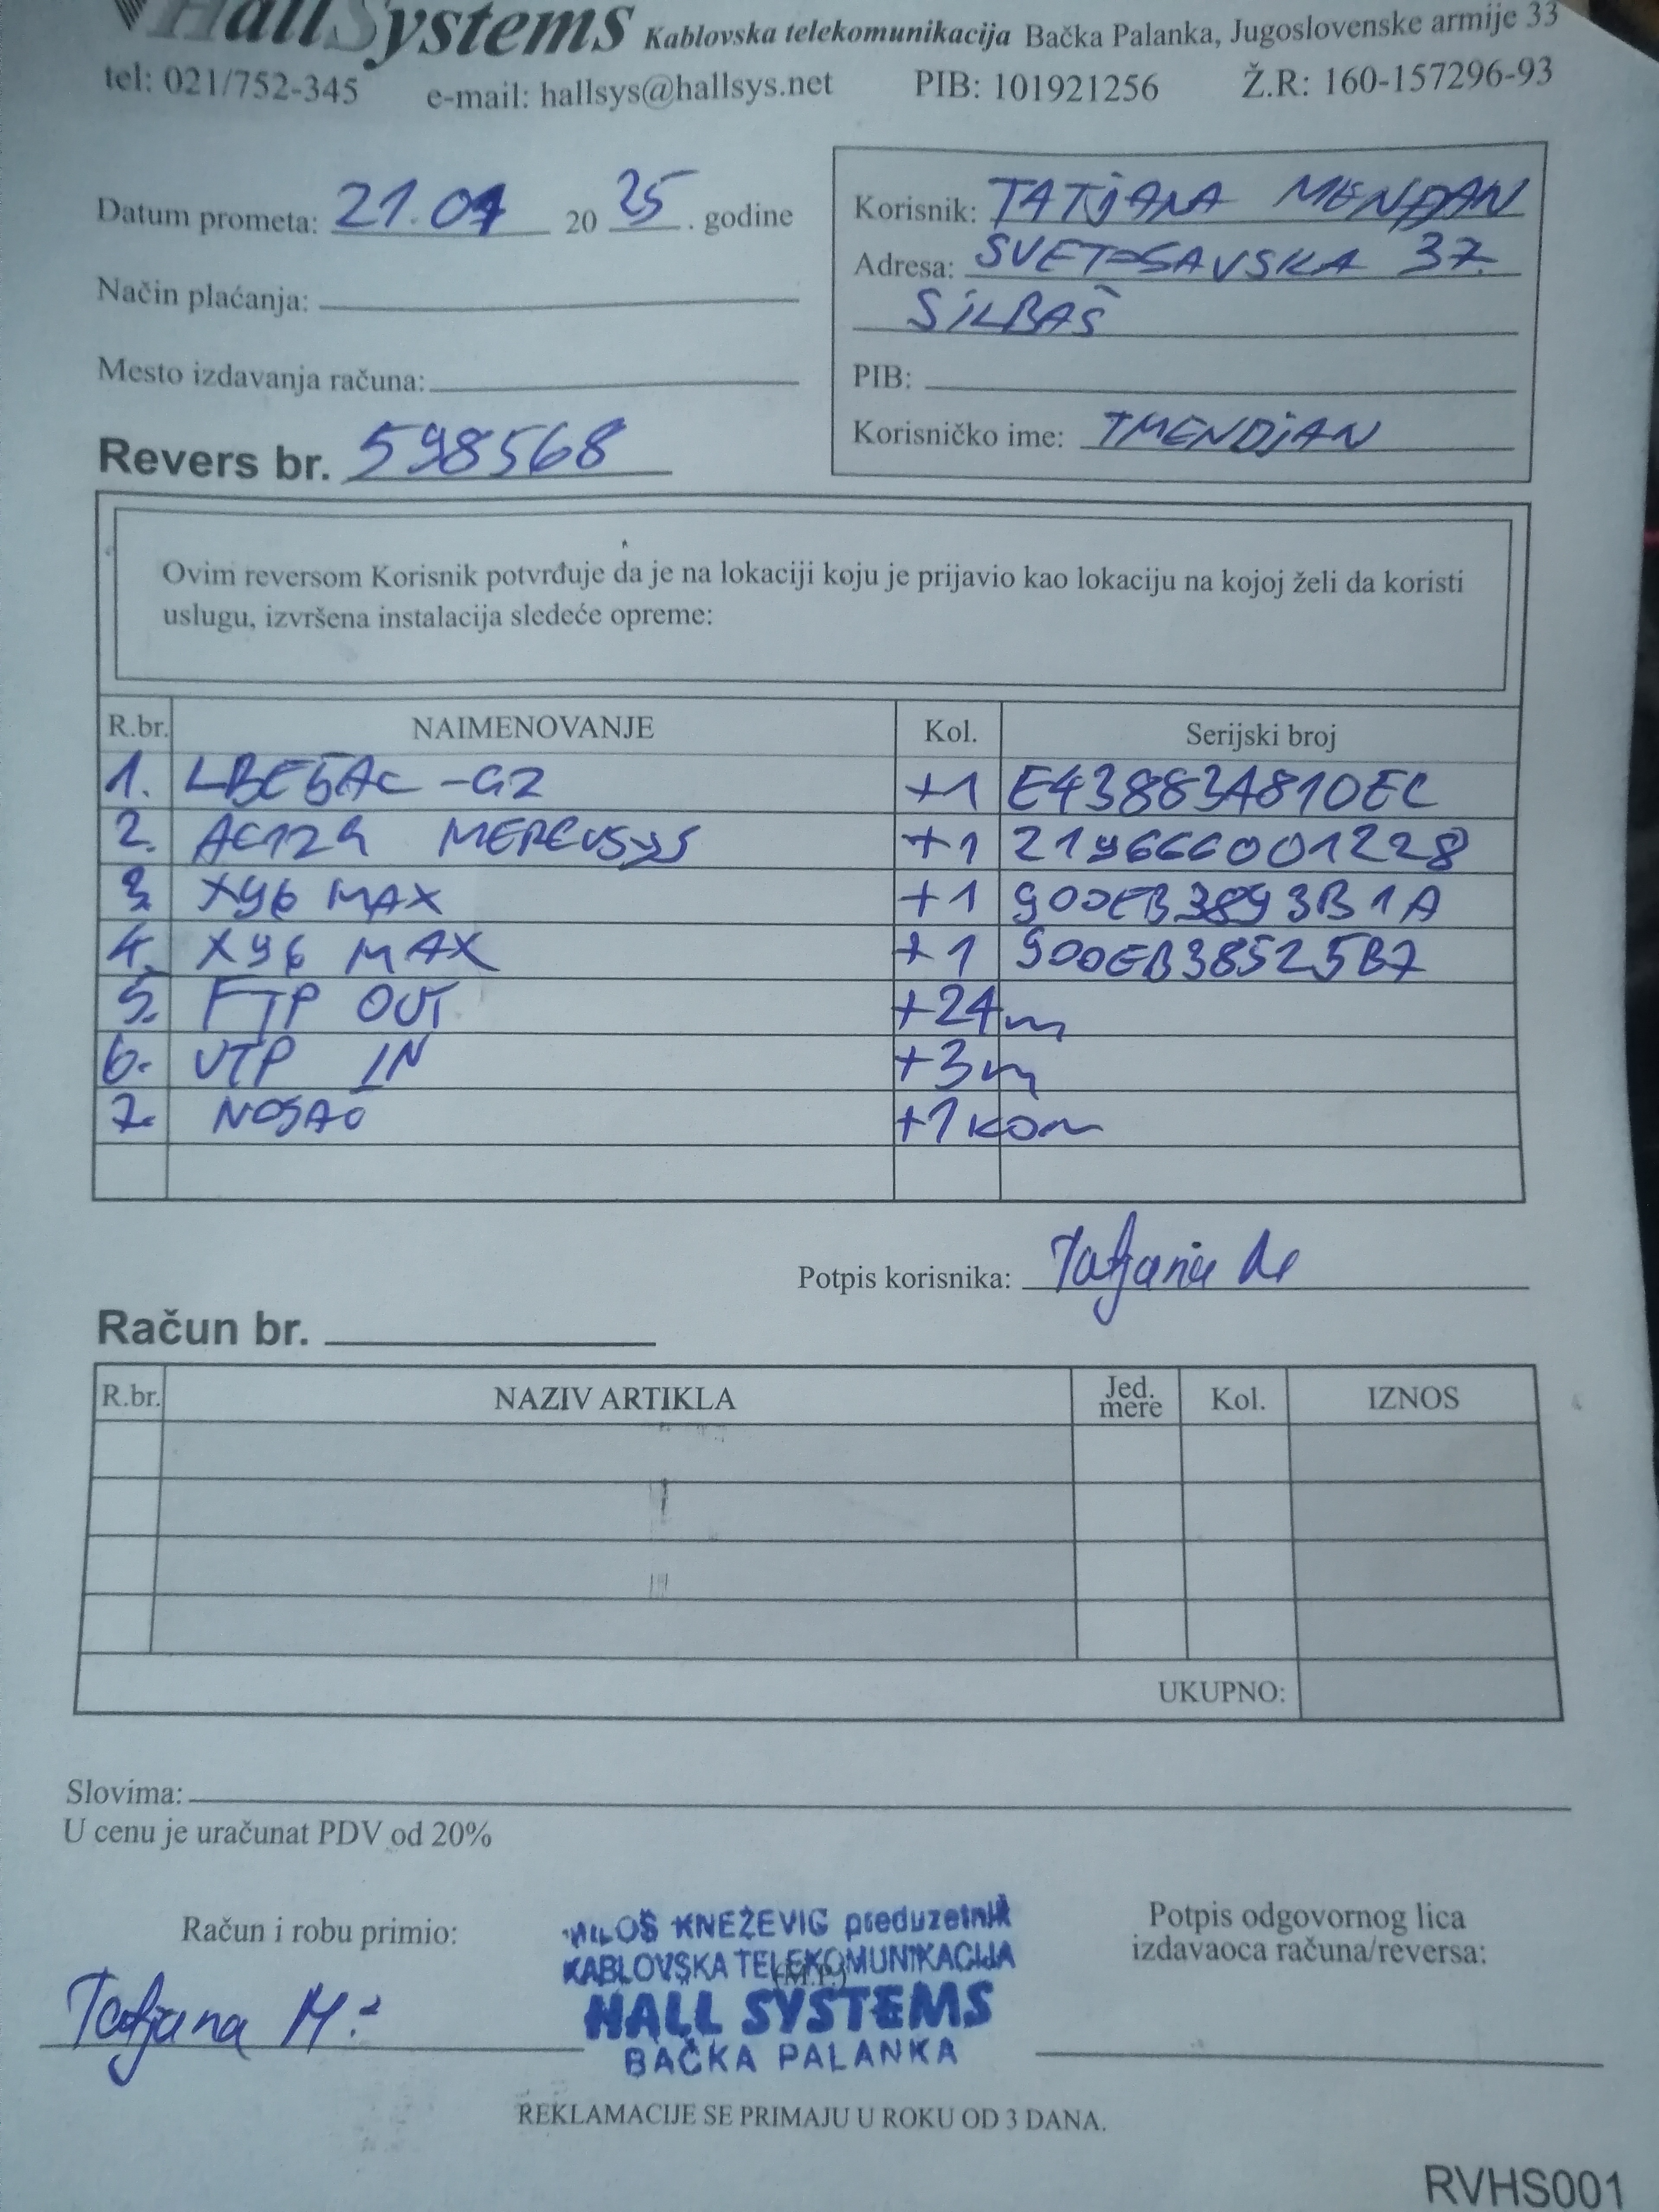 HallSystems Kablovska telekomunikacija Bačka Palanka, Jugoslovenske armije 33
tel: 021/752-345 e-mail: hallsys@hallsys.net PIB: 101921256 Ž.R: 160-157296-93
Datum prometa: 21.07 2025. godine
Način plaćanja:
Mesto izdavanja računa:
Revers br. 598568
Korisnik: TATJANA MENDJAN
Adresa: SVETOSAVSKA 37.
SILBAŠ
PIB:
Korisničko ime: TMENDJAN
Ovim reversom Korisnik potvrđuje da je na lokaciji koju je prijavio kao lokaciju na kojoj želi da koristi
uslugu, izvršena instalacija sledeće opreme:
R.br. NAIMENOVANJE Kol. Serijski broj
1. LBE5AC-G2 +1 E438834810EC
2. AC12G MERCUSYS +1 2196666001228
3. X96 MAX +1 900EB3893B1A
4. X96 MAX +1 900EB38525B7
5. FTP OUT +24m
6. UTP IN +3m
7. NOSAČ +1 kom
Potpis korisnika: Tatjana
Račun br.
R.br. NAZIV ARTIKLA Jed. mere Kol. IZNOS
UKUPNO:
Slovima:
U cenu je uračunat PDV od 20%
Račun i robu primio:
Tatjana M.
MILOŠ KNEŽEVIĆ preduzetnik
KABLOVSKA TELEKOMUNIKACIJA
(M.P.)
HALL SYSTEMS
BAČKA PALANKA
Potpis odgovornog lica
izdavaoca računa/reversa:
REKLAMACIJE SE PRIMAJU U ROKU OD 3 DANA.
RVHS001